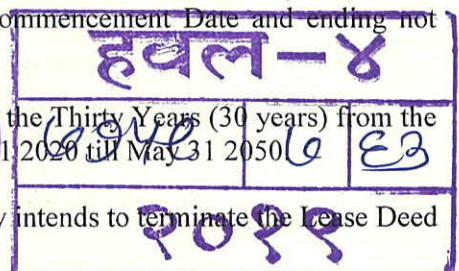 ommencement Date and ending not
हवल-४
the Thirty Years (30 years) from the
1 2020 till May 31 2050
७ ६३
y intends to terminate the Lease Deed
२०१९